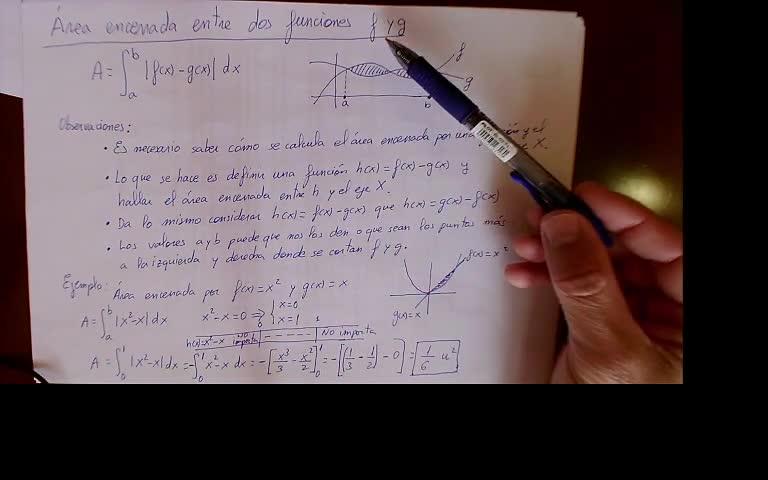 Área encerrada entre dos funciones f y g
A = ∫_a^b |f(x) - g(x)| dx
f
g
a
b
Observaciones:
• Es necesario saber cómo se calcula el área encerrada por una y el
eje X.
• Lo que se hace es definir una función h(x) = f(x) - g(x) y
hallar el área encerrada entre h y el eje X.
• Da lo mismo considerar h(x) = f(x) - g(x) que h(x) = g(x) - f(x)
• Los valores a y b puede que nos los den o que sean los puntos más
a la izquierda y derecha donde se cortan f y g.
Ejemplo: Área encerrada por f(x) = x² y g(x) = x
f(x) = x²
g(x) = x
A = ∫_a^b |x² - x| dx x² - x = 0 ⇒ { x = 0 x = 1
0 1
h(x) = x² - x No importa - - - - - No importa
A = ∫_0^1 |x² - x| dx = -∫_0^1 x² - x dx = -[x³/3 - x²/2]_0^1 = -[(1/3 - 1/2) - 0] = 1/6 u²